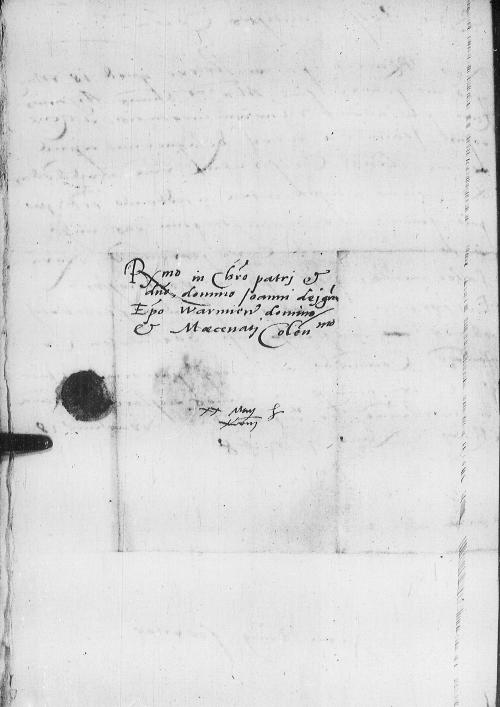 Rmo in Chro patri &
dno, domino Joanni dei gra
Epo Warmien domino
& Mæcenati Colenmo
xx May